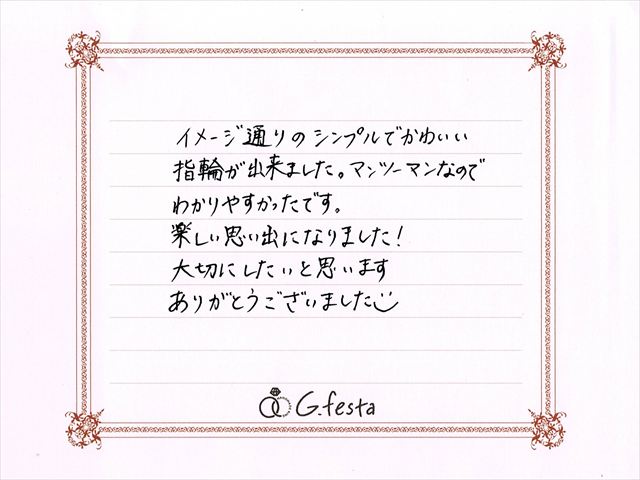 イメージ通りのシンプルでかわいい
指輪が出来ました。マンツーマンなので
わかりやすかったです。
楽しい思い出になりました!
大切にしたいと思います
ありがとうございました
G.festa